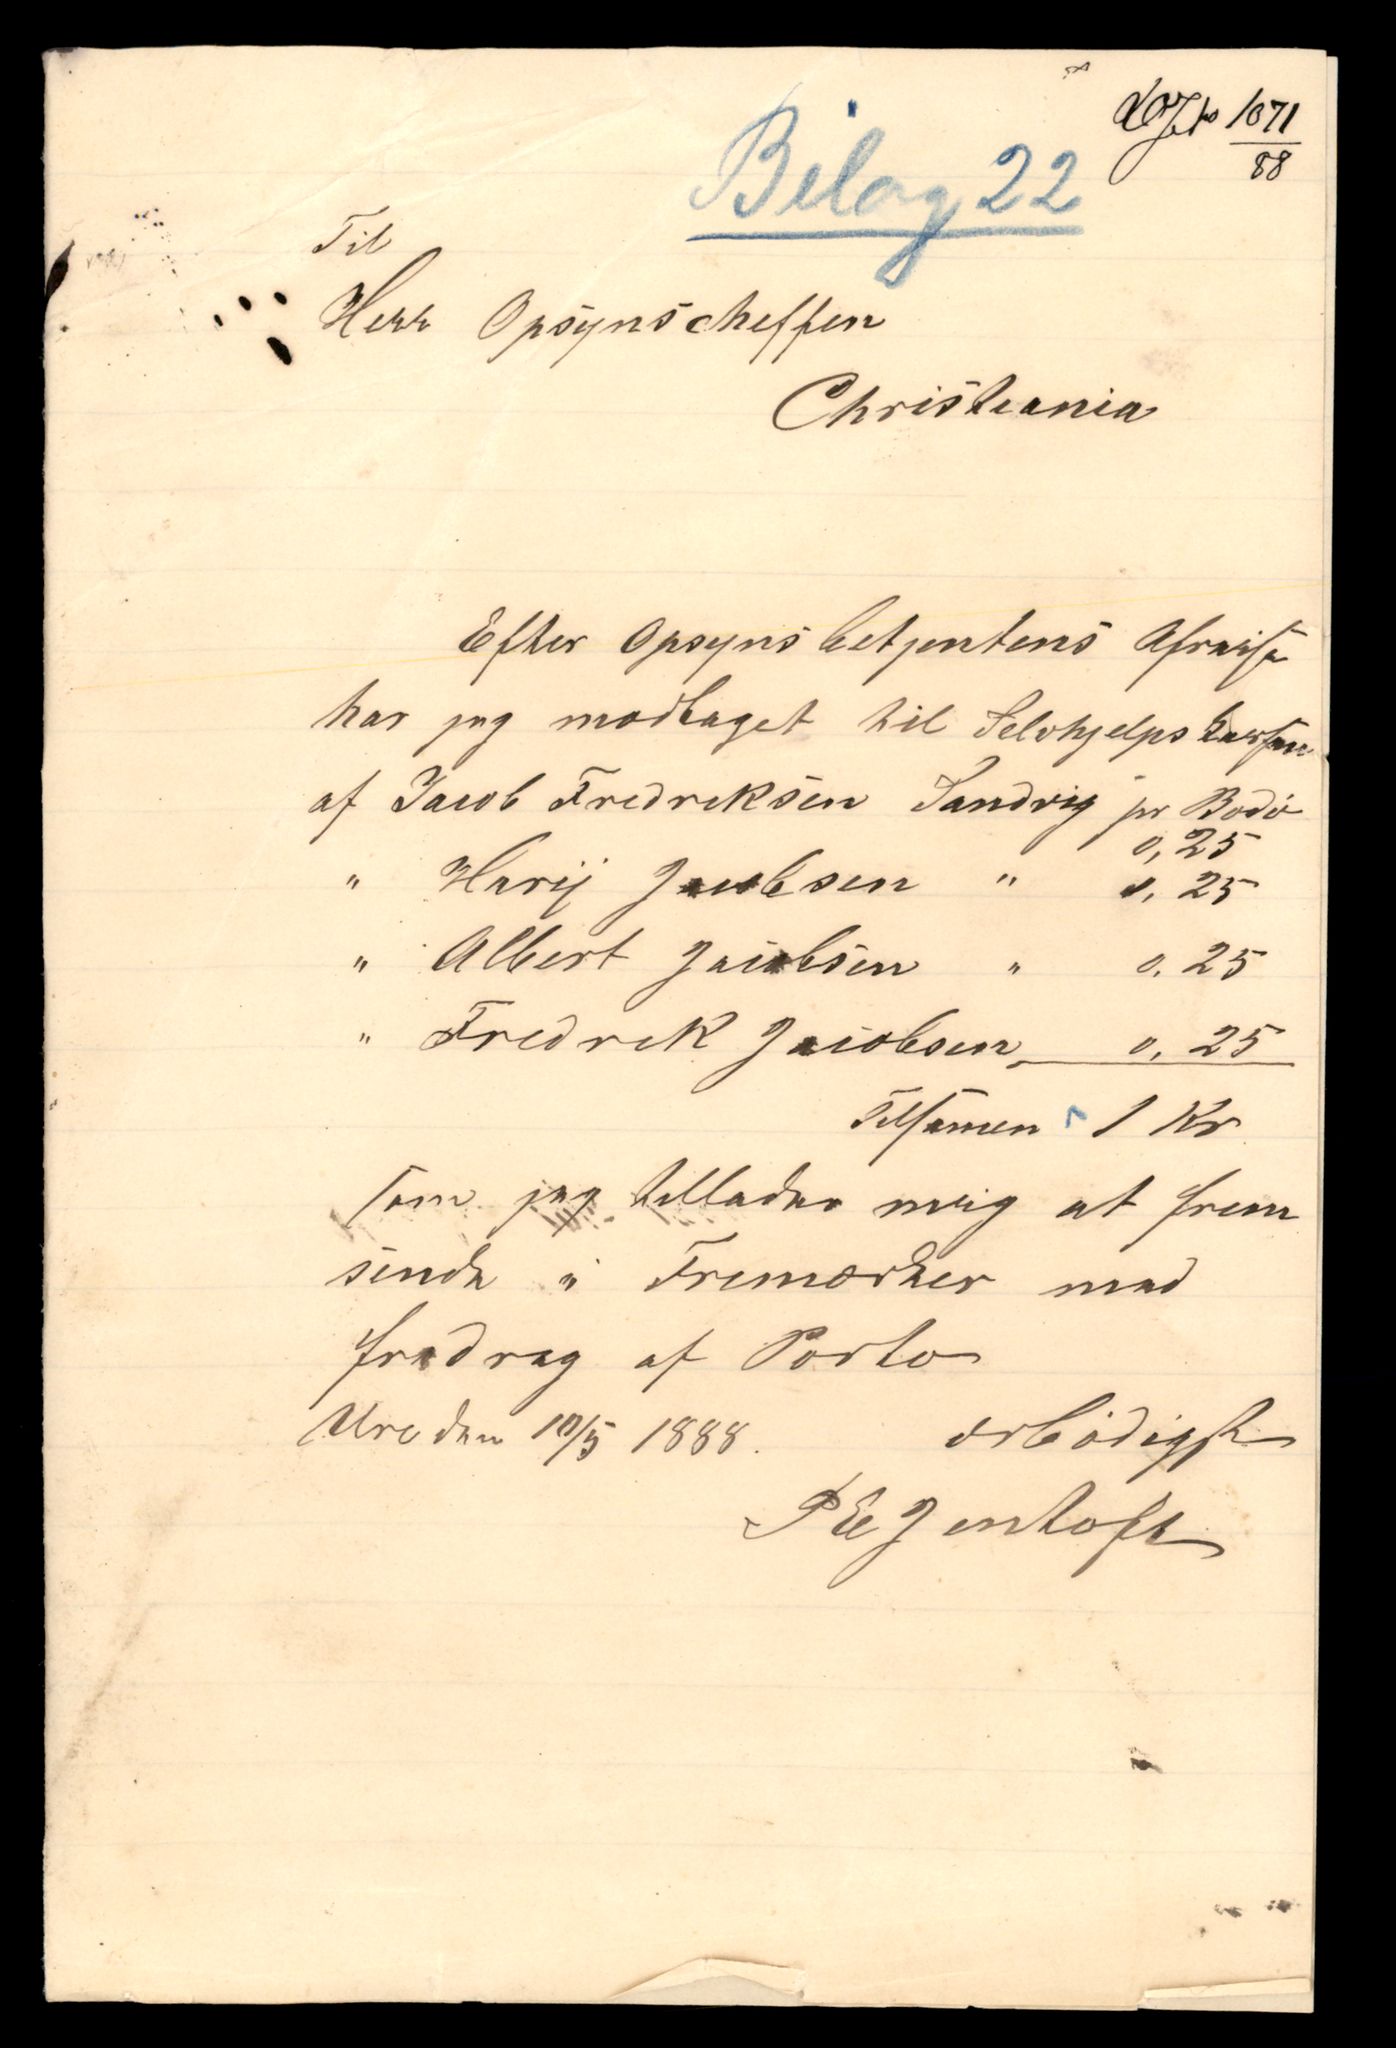 1071
88
Bilag 22
Til
Herr Opsynscheffen
Christiania
Efter Opsynsbetjentens Afreise
har jeg modtaget til Selvhjelpskassen
af Jacob Fredreksen Sandvig pr Bodö
0,25
" Harij Jacobsen " 0,25
" Albert Jacobsen " 0,25
" Fredrek Jacobsen 0,25
Tilsamen 1 Kr
som jeg tellader meig at frem
sende i Fremærker med
fradrag af Porto
Ure den 10/5 1888. ærbödigst
P E Jentoft